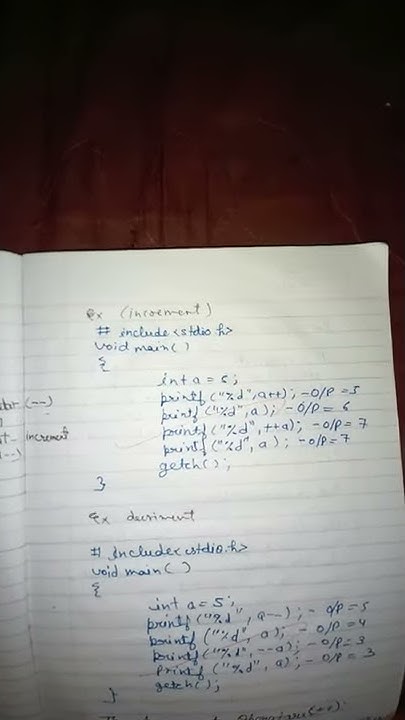 Ex (increment)
# include <stdio h>
void main()
{
int a = 5;
printf ("%d", a++); - O/P = 5
printf ("%d", a); - O/P = 6
printf ("%d", ++a); - O/P = 7
printf ("%d", a); - O/P = 7
getch();
}
(--)
increment
Ex decriment
# Include <stdio.h>
void main()
{
int a = 5;
printf ("%d", a--); - O/P = 5
printf ("%d", a); - O/P = 4
printf ("%d", --a) - O/P = 3
printf ("%d", a); - O/P = 3
getch();
}